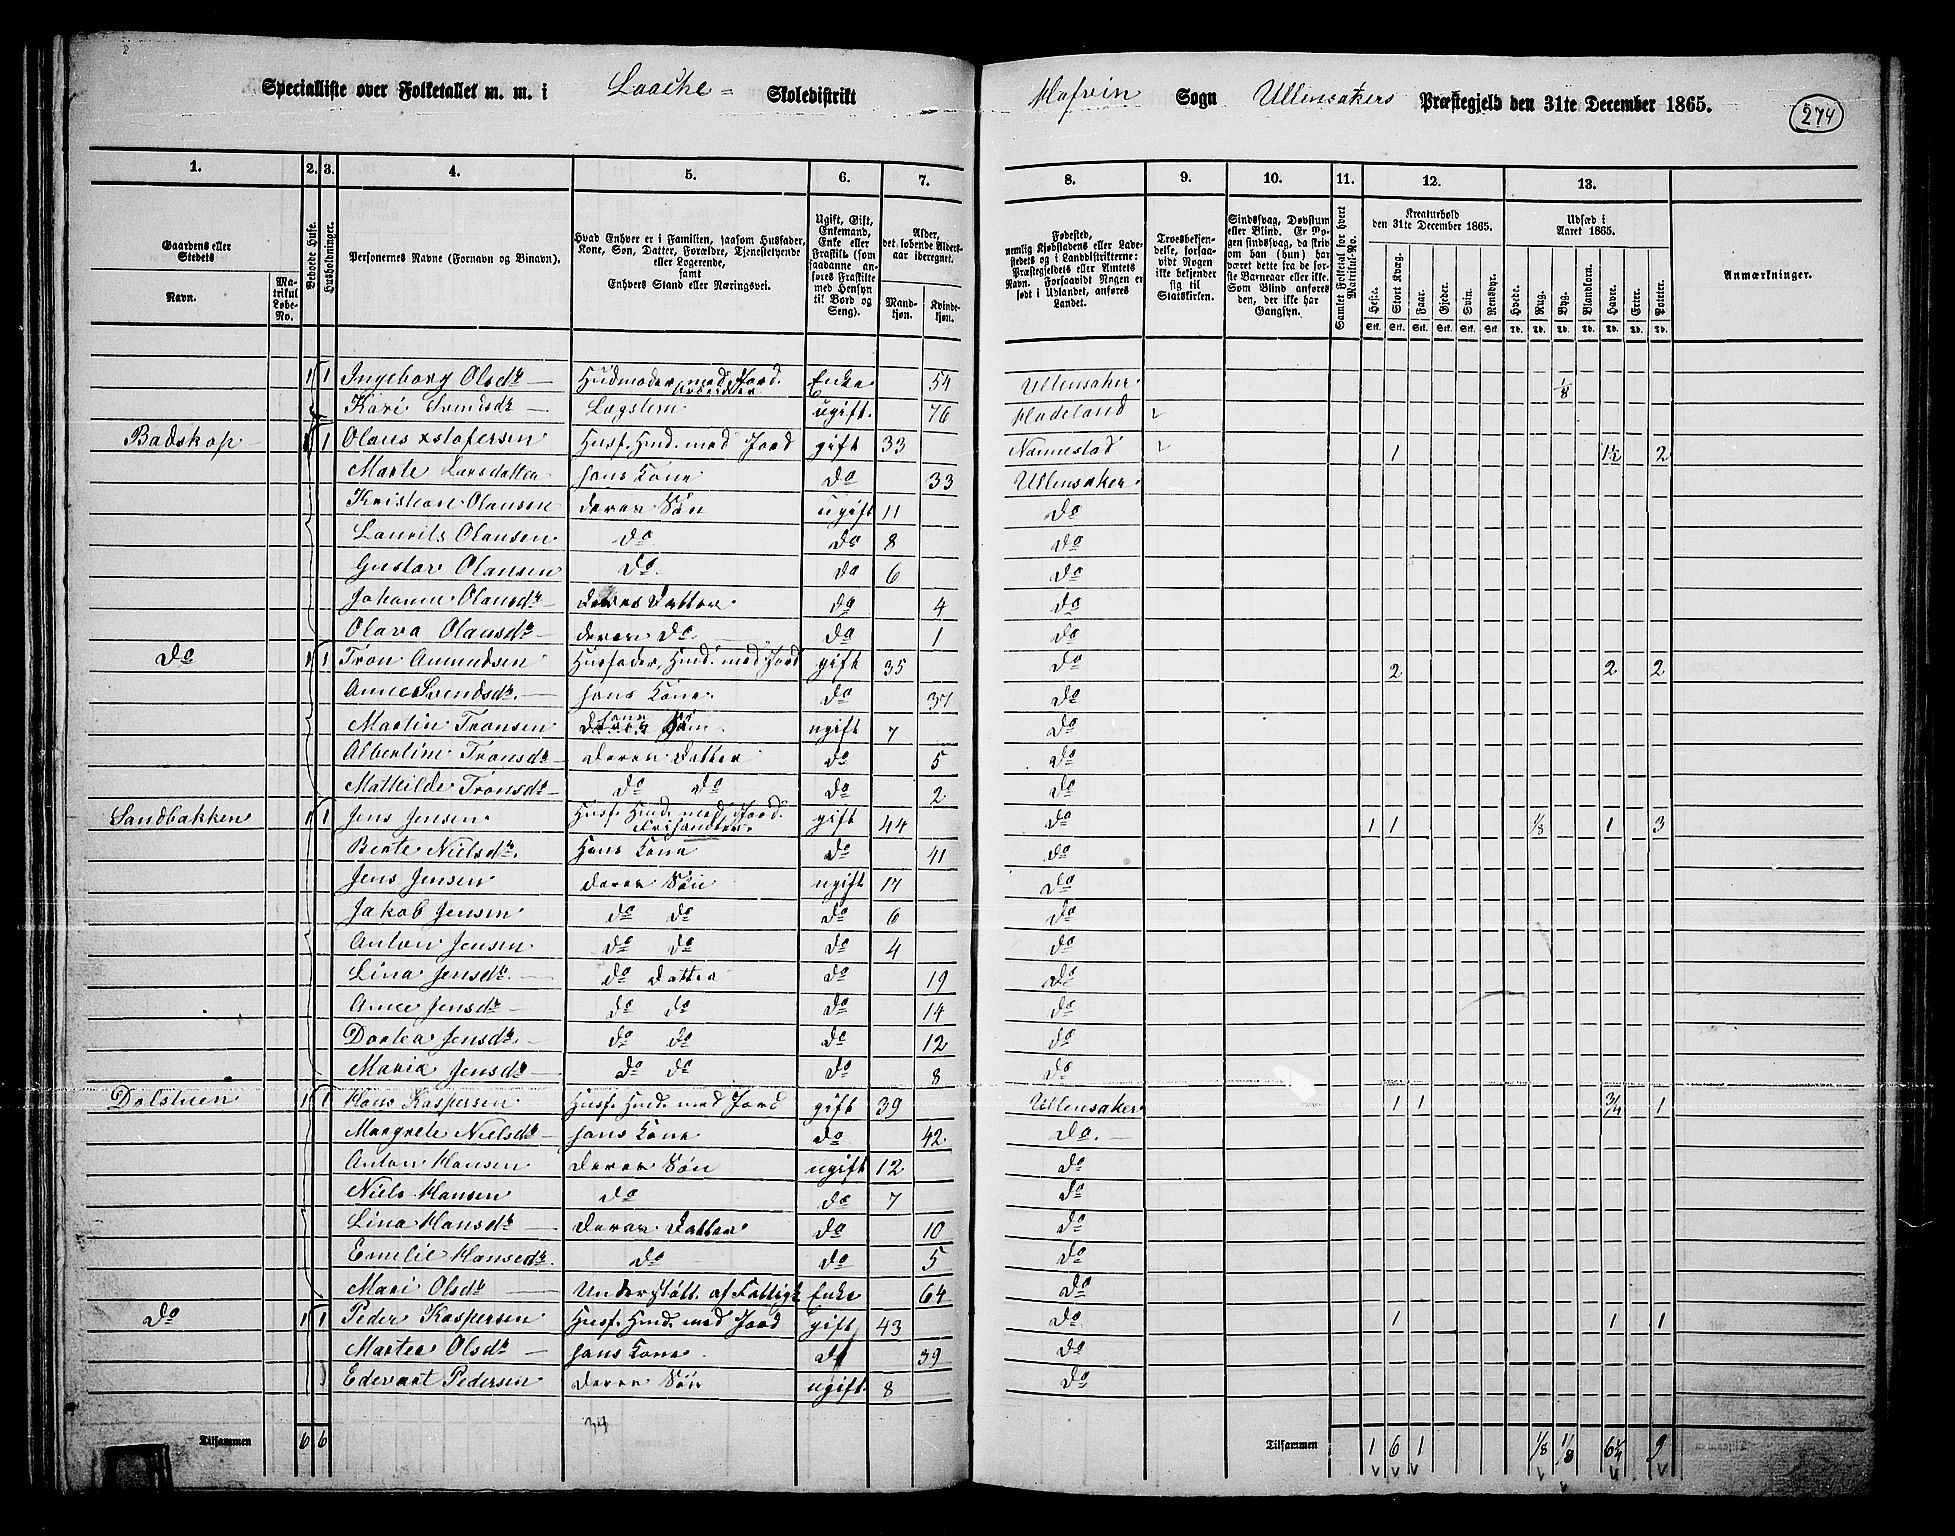 Specialliste over Folketallet m. m. i Laache = Skoledistrikt Hofvin Sogn Ullensakers Præstegjeld den 31te December 1865.
274
1. 2. 3. 4. 5. 6. 7. 8. 9. 10. 11. 12. 13.
Gaardens eller Stedets
Navn.
Matrikul Løbe-No.
Beboede Huse.
Husholdninger.
Personernes Navne (Fornavn og Binavn).
Hvad Enhver er i Familien, saasom Husfader, Kone, Søn, Datter, Forældre, Tjenestetyende eller Logerende, samt Enhvers Stand eller Næringsvei.
Ugift, Gift, Enkemand, Enke eller Fraskilt (som saadanne anføres Fraskilte med Hensyn til Bord og Seng).
Alder, det løbende Alders-aar iberegnet.
Mand-kjøn.
Kvinde-kjøn.
Fødested, nemlig Kjøbstadens eller Ladestedets og i Landdistrikterne: Præstegjeldets eller Amtets Navn. Forsaavidt Nogen er født i Udlandet, anføres Landet.
Troesbekjendelse, forsaavidt Nogen ikke bekjender sig til Statskirken.
Sindssvag, Døvstum eller Blind. Er Nogen sindssvag, da skrives om han (hun) har været dette fra de første Barneaar eller ikke. Som Blind anføres den, der ikke har Gangsyn.
Samlet Folketal for hvert Matrikul-No.
Kreaturhold den 31te December 1865.
Heste. Stort Kvæg. Faar. Gjeder. Svin. Rensdyr.
Udsæd i Aaret 1865.
Hvede. Rug. Byg. Blandkorn. Havre. Erter. Poteter.
Anmærkninger.
1 1 Ingeborg Olsdtr Husmoder med Jord. Enke 54 Ullensaker 1/8
Kari Svendsdtr Lægslem ugift. 76 Hadeland
Badskop 1 1 Olaus Xstofersen Husf. Husm. med Jord gift 33 Nannestad 1 1½ 2
Marte Larsdatter hans Kone do 33 Ullensaker.
Kristian Olausen deres Søn ugift 11 do
Laurits Olausen. do do 8 do
Gustav Olausen do. do 6 do
Johanne Olausdtr deres Datter do 4 do
Olava Olausdtr deres do do 1 do
do 1 1 Tron Amundsen Husfader, Husm. med Jord gift 35 do 2 2 2
Anne Svendsdtr. hans Kone. do 37 do
Martin Tronsen hans Søn. ugift 7 do
Albertine Tronsdtr deres Datter do 5 do
Mathilde Tronsdtr do do do 2 do
Sandbakken 1 1 Jens Jensen. Husf. Husm. med Jord. gift 44 do 1 1 1/8 1 3
Berte Nielsdtr. Hans Kone do 41 do
Jens Jensen deres Søn ugift 17 do
Jakob Jensen do do do 6 do
Anton Jensen do do do 4 do
Lina Jensdtr. do Datter do 19 do
Anne Jensdtr do do do 14 do
Dortea Jensdtr. do do do 12 do
Maria Jensdtr do do do 8 do
Dalstuen 1 1 Hans Kaspersen Husf. Husm. med Jord gift 39 Ullensaker 1 1 3/4 1
Margrete Nielsdtr hans Kone do 42. do.
Anton Hansen deres Søn ugift 12 do
Niels Hansen do do 7 do
Lina Hansdtr deres Datter do 10 do
Emelie Hansdtr. do do 5 do
Mari Olsdtr Understøtt. af Fattigk Enke 64 do
do 1 1 Peder Kaspersen Husf. Husm. med Jord gift 43 do 1 1 1
Martea Olsdtr hans Kone. do 39 do
Edevart Pedersen deres Søn ugift. 8 do
Tilsammen 6 6 Tilsammen 1 6 1 1/8 1/8 6¼ 9